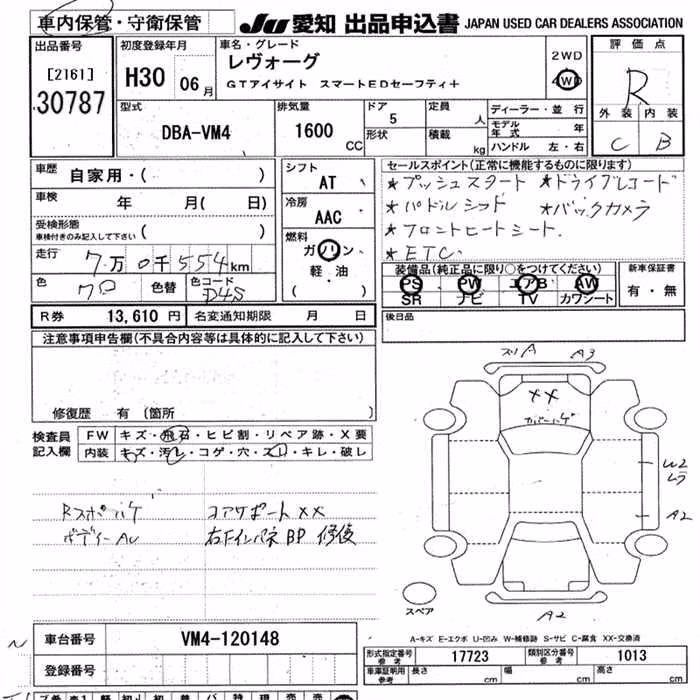 車内保管・守衛保管
JU 愛知 出品申込書 JAPAN USED CAR DEALERS ASSOCIATION
出品番号
[2161]
30787
初度登録年月
H30 06月
車名・グレード
レヴォーグ
GTアイサイト スマートEDセーフティ+
2WD
4WD
評価点
R
外装 内装
C B
型式
DBA-VM4
排気量
1600 CC
ドア
5
形状
定員
人
積載
kg
ディーラー・並行
モデル年式 年
ハンドル 左・右
車歴
自家用・( )
車検 年 月( 日)
受検形態
車検付きのみ記入して下さい ( )
走行 7万0千554km
色 クロ 色替 色コード D4S
シフト
AT
冷房
AAC
燃料
ガソリン
軽・油
( )
セールスポイント(正常に機能するものに限ります)
★プッシュスタート ★ドライブレコード
★パドルシフト ★バックカメラ
★フロントヒートシート
★ETC
装備品(純正品に限り○をつけてください)
PS PW エアB AW
SR ナビ TV カワシート
新車保証書
有・無
R券 13,610円 名変通知期限 月 日
後日品
注意事項申告欄(不具合内容等は具体的に記入して下さい)
修復歴 有 (箇所 )
検査員
記入欄
FW キズ・飛石・ヒビ割・リペア跡・X要
内装 キズ・汚レ・コゲ・穴・スレ・キレ・破レ
Rスポハゲ コアサポートXX
ボディーAU 右下インパネBP 修復
スリA A3
XX
カバーハゲ
W2
A2
スペア
A2
A-キズ E-エクボ U-凹み W-補修跡 S-サビ C-腐食 XX-交換済
車台番号 VM4-120148
登録番号
形式指定番号
参考
17723
類別区分番号
参考
1013
車庫証明用
参考
長さ cm 幅 cm 高さ cm